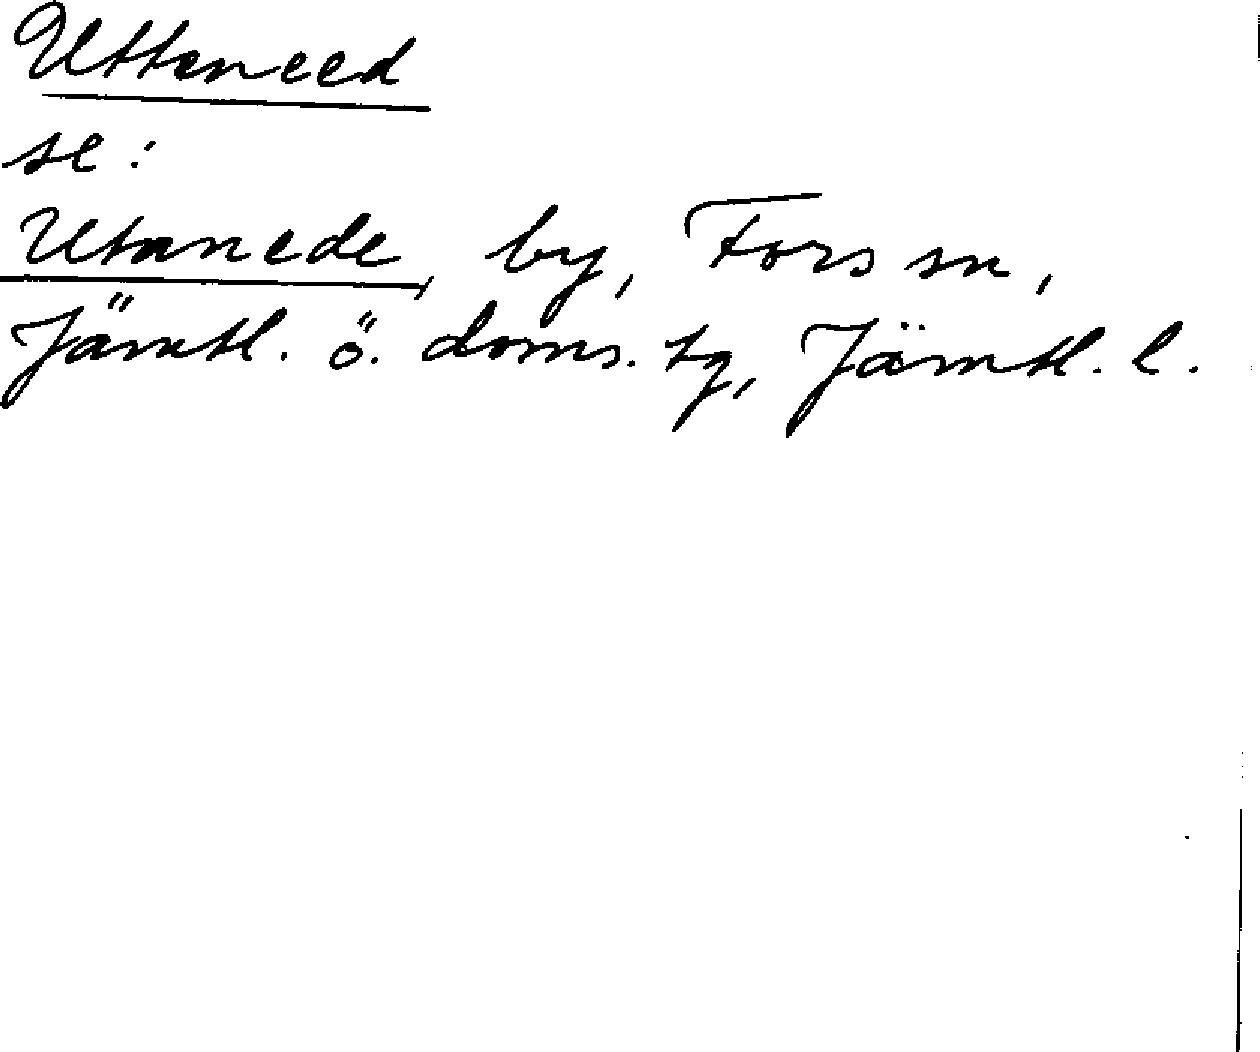 Uttaneed
se:
Utanede, by, Fors sn,
Jämtl. ö. doms. tg, Jämtl. l.